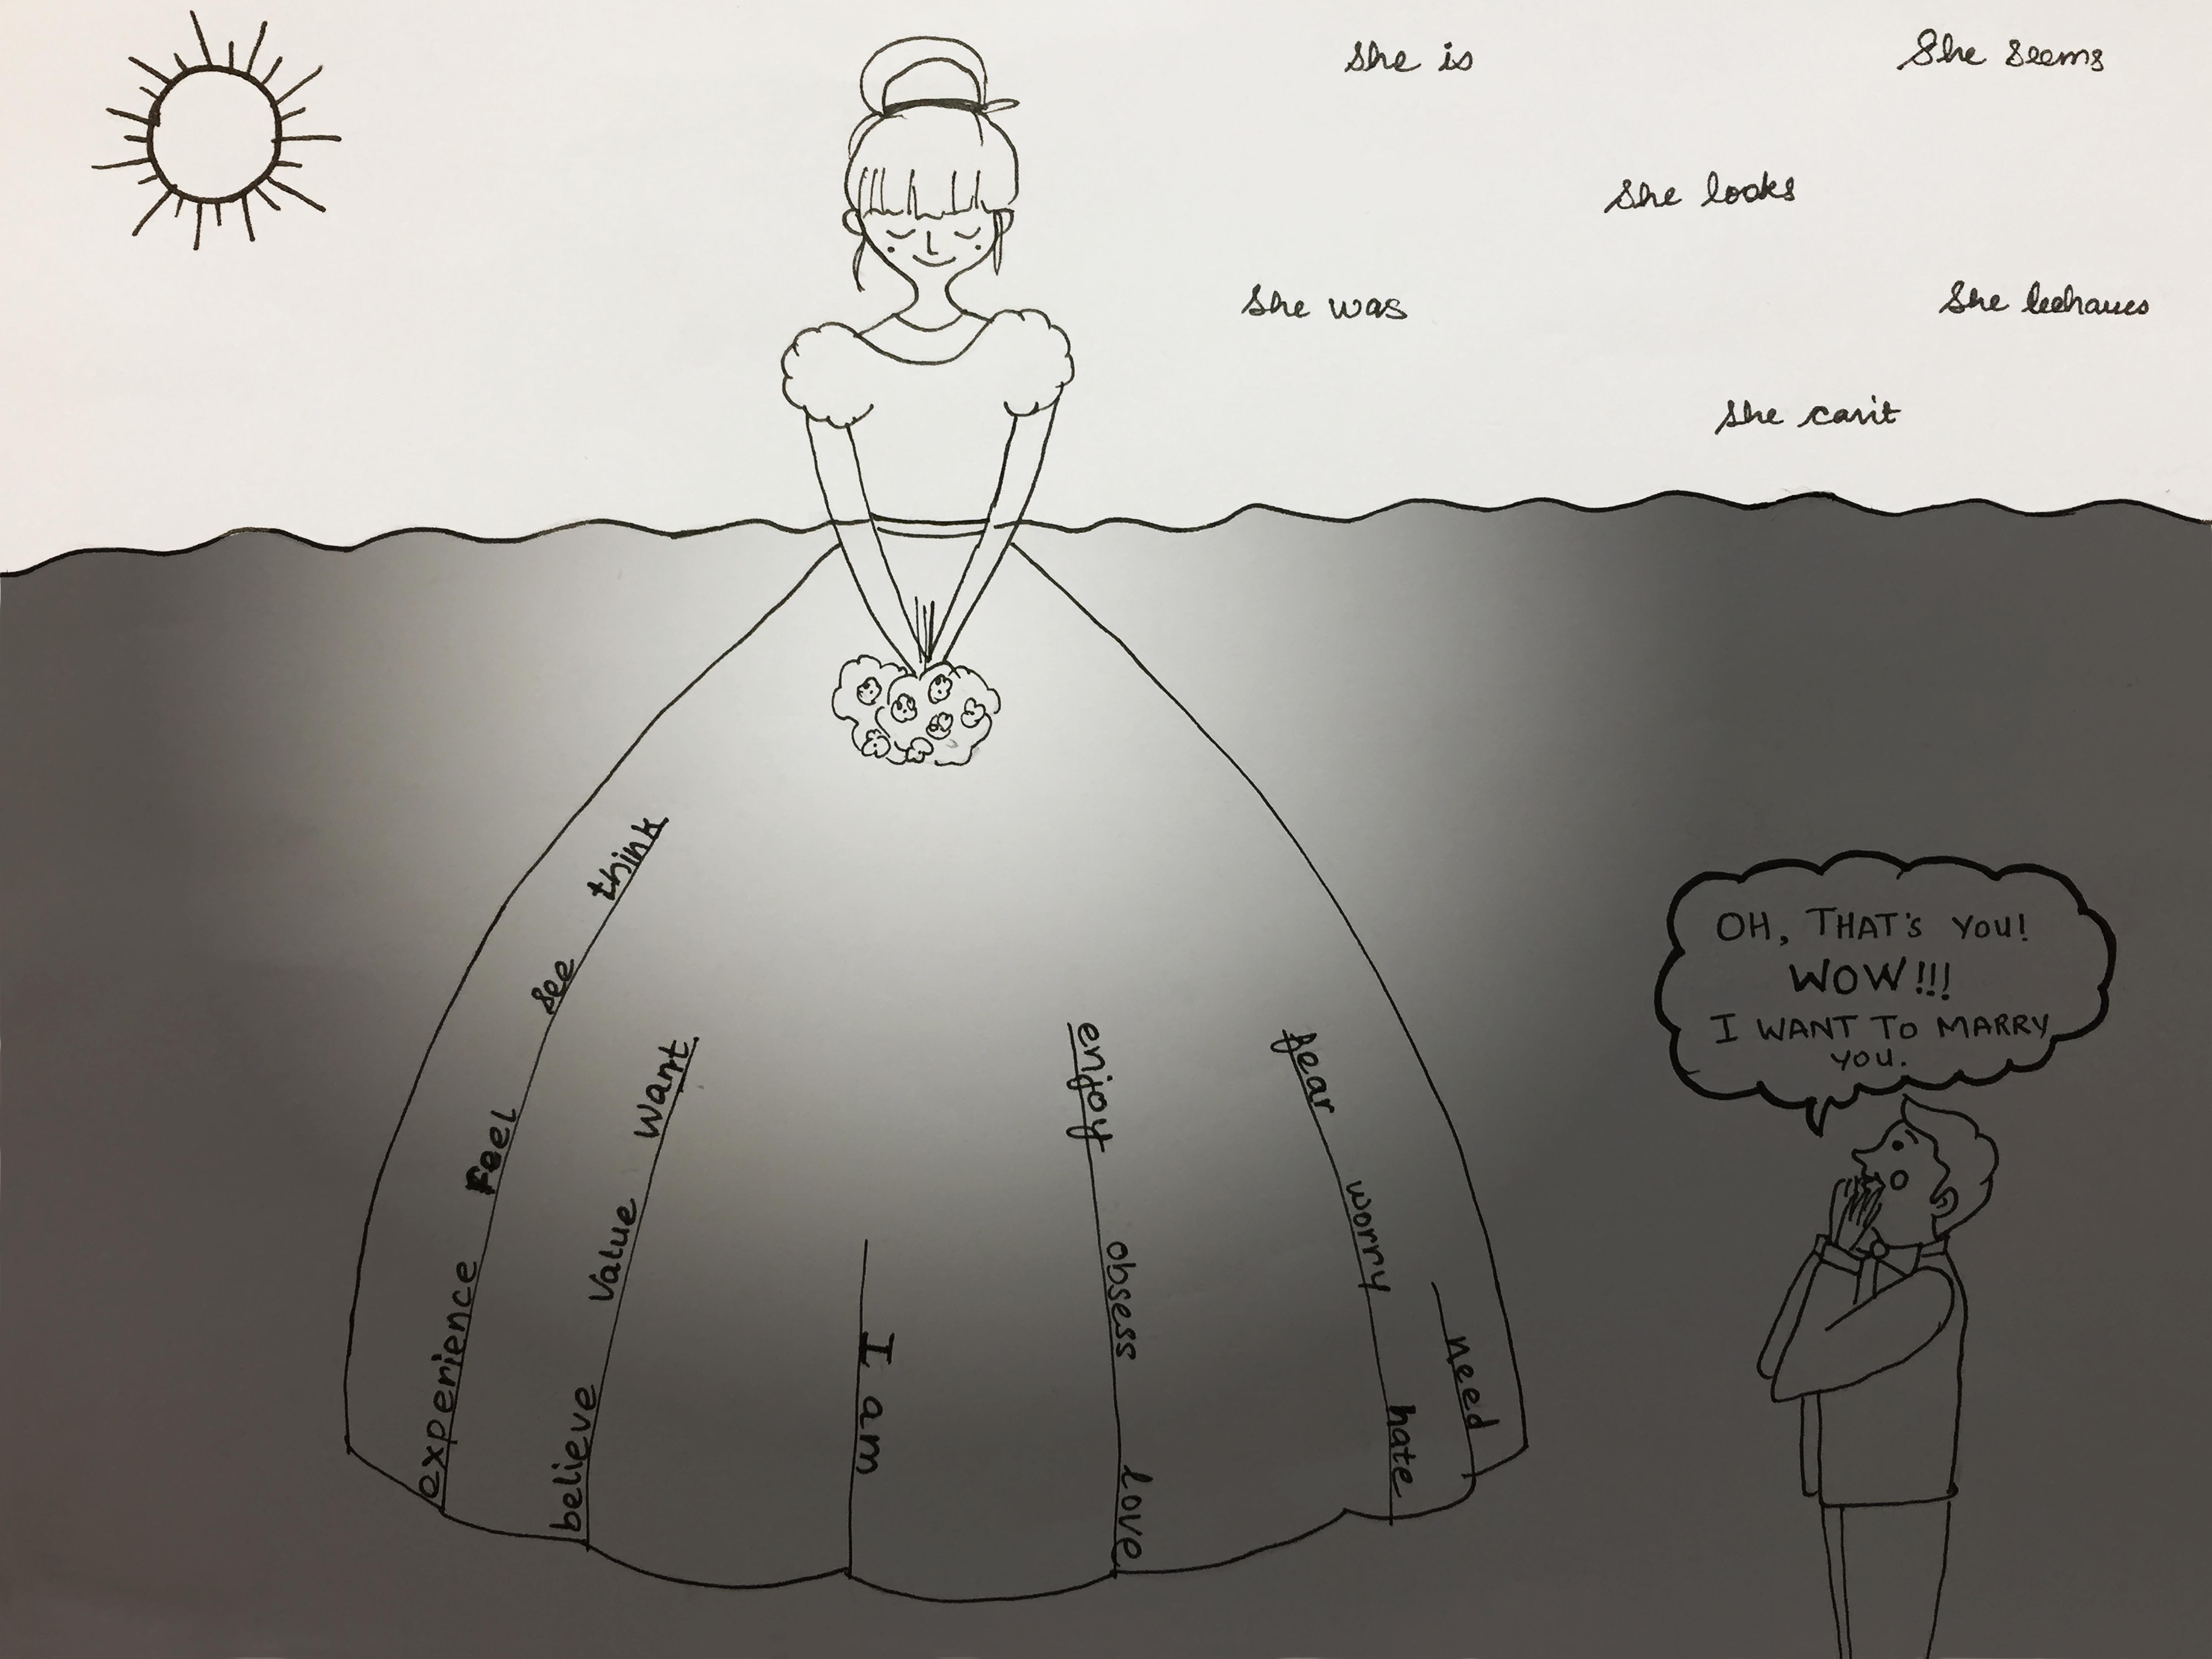 She is
She seems
She looks
She was
She behaves
She can't
think
see
Feel
experience
want
value
believe
I am
enjoy
obsess
love
fear
worry
hate
need
OH, THAT'S YOU!
WOW!!!
I WANT TO MARRY
YOU.